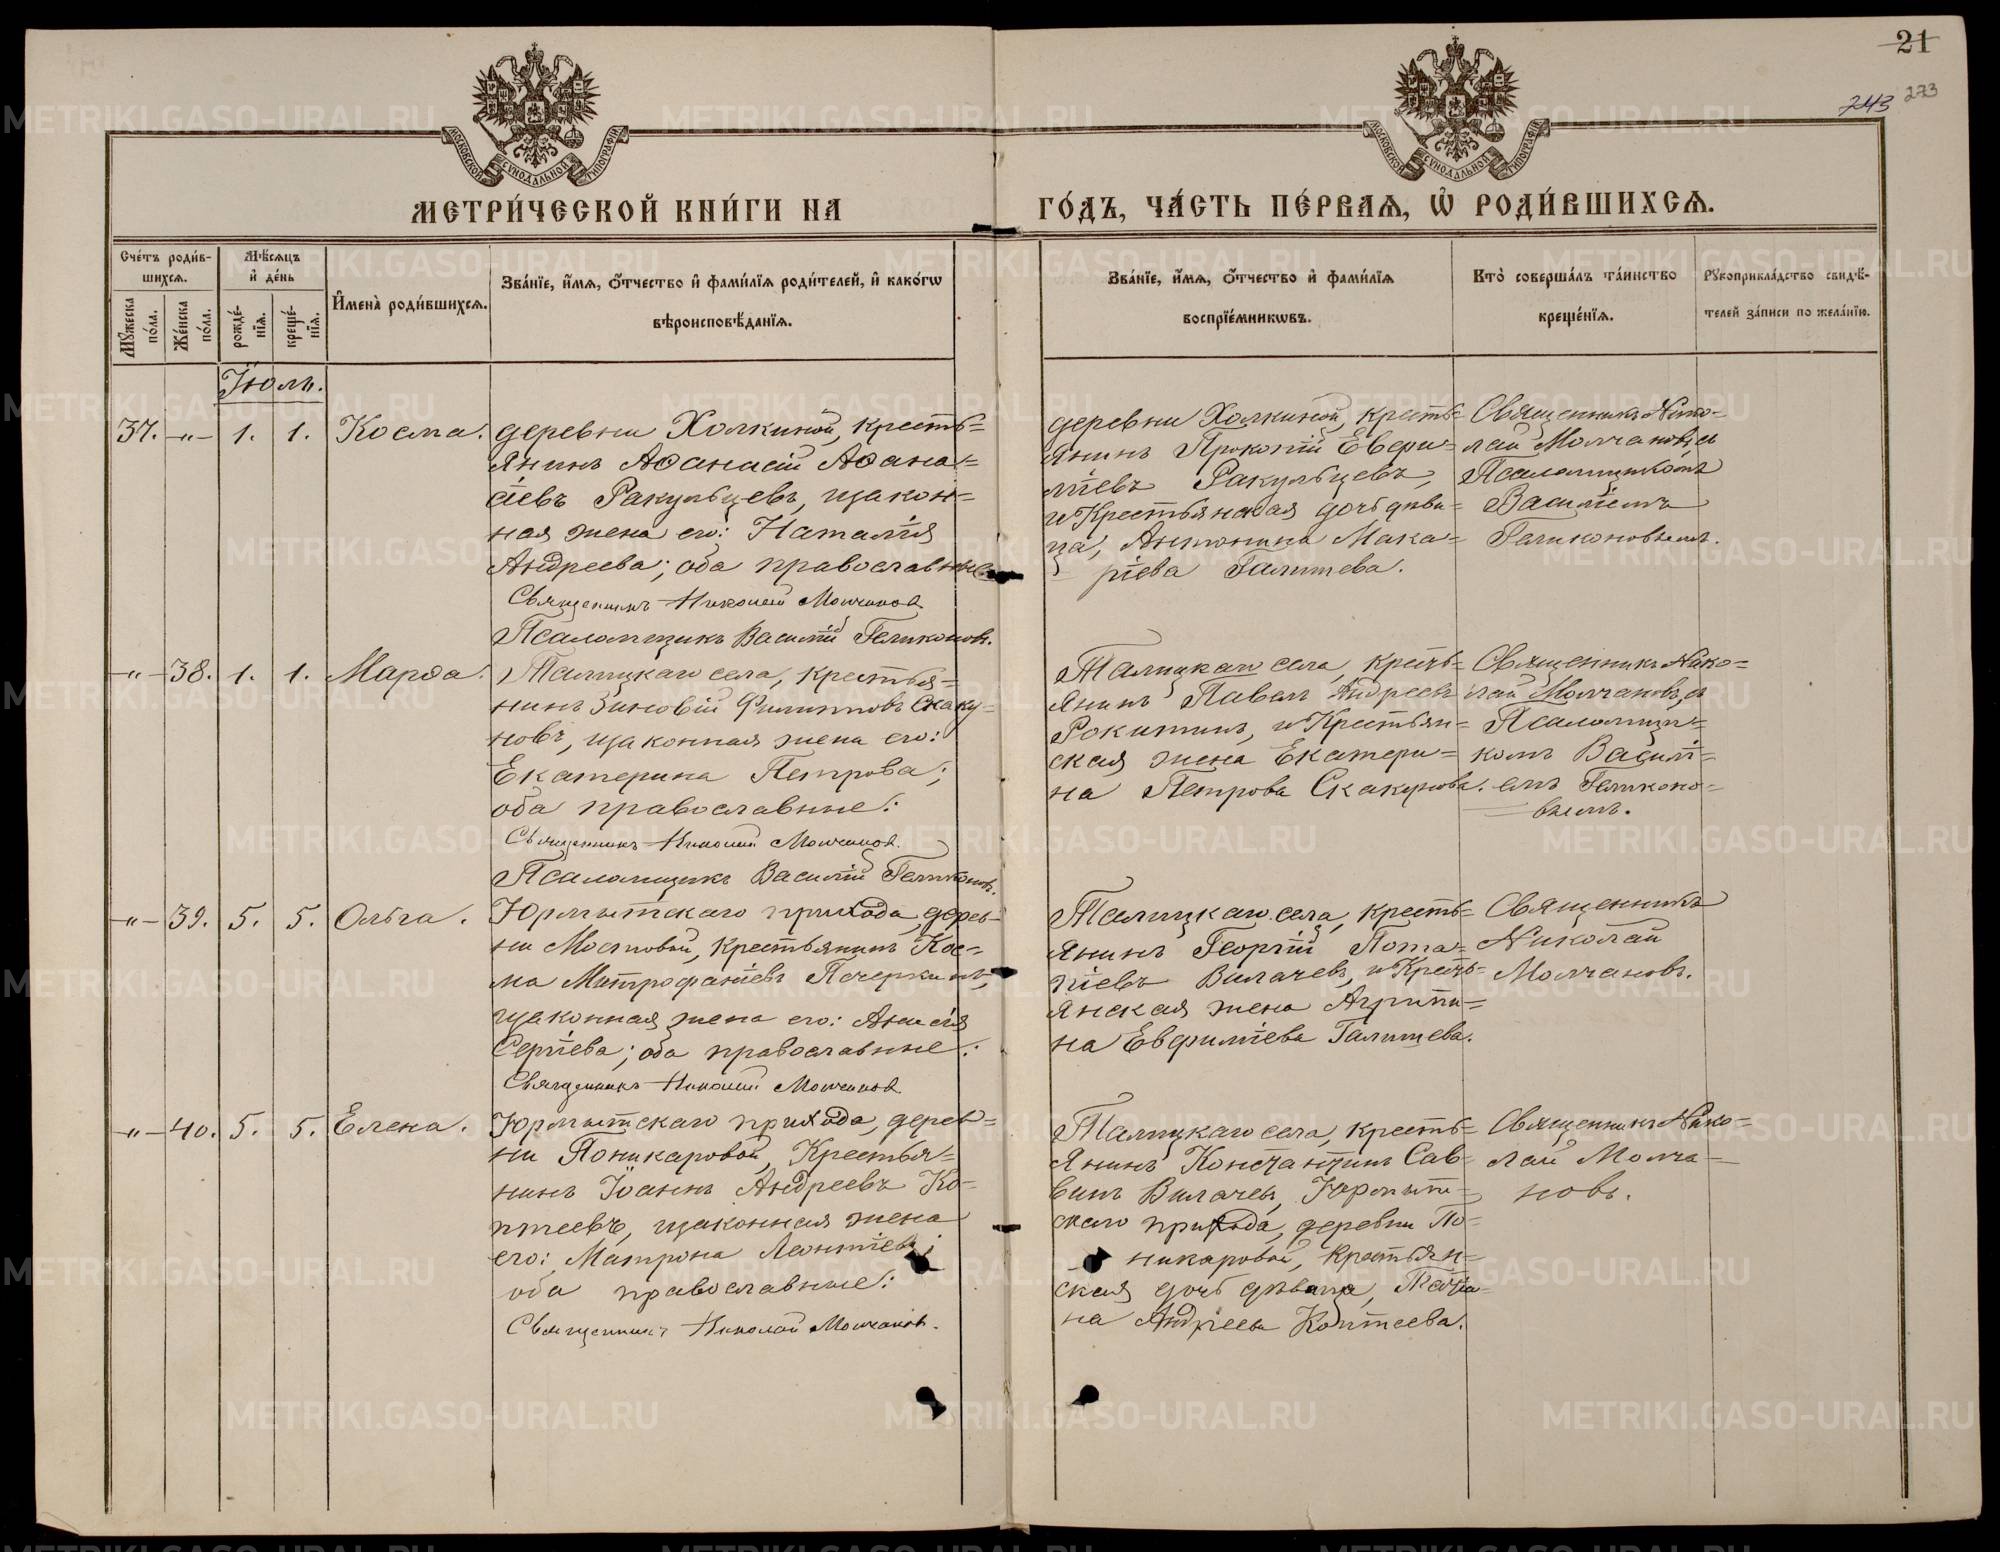 21
243
273
МОСКОВСКОЙ СѴНОДАЛЬНОЙ ТИПОГРАФІИ
МОСКОВСКОЙ СѴНОДАЛЬНОЙ ТИПОГРАФІИ
МЕТРИ́ЧЕСКОЙ КНИ́ГИ НА
ГО́ДЪ, ЧА́СТЬ ПЕ́РВАѦ, Ѡ҆ РОДИ́ВШИХСѦ.
Сче́тъ роди́в-
шихсѧ.
Мѣ́сѧцъ
и҆ де́нь
Мꙋ́жеска
по́ла.
Же́нска
по́ла.
рожде́-
нїѧ.
креще́-
нїѧ.
И҆мена̀ роди́вшихсѧ.
Зва́нїе, и҆́мѧ, ѻ҆́тчество и҆ фами́лїѧ роди́телей, и҆ како́гѡ
вѣроисповѣ́данїѧ.
Зва́нїе, и҆́мѧ, ѻ҆́тчество и҆ фами́лїѧ
воспрїе́мникѡвъ.
Кто̀ соверша́лъ та́инство
креще́нїѧ.
Рꙋкоприкла́дство свидѣ́-
телей за́писи по жела́нїю.
Іюль.
37. -"- 1. 1. Косма.
деревни Холкиной, кресть=
янинъ Аѳанасій Аѳана=
сіевъ Ракульцевъ, и закон=
ная жена его: Наталія
Андреева; оба православные
Священникъ Николай Молчановъ
Псаломщикъ Василій Геликоновъ.
деревни Холкиной, кресть=
янинъ Прокопій Еври=
піевъ Ракульцевъ,
и Крестьянская дочь дѣви=
ца, Антонина Мака=
ріева Галишева.
Священникъ Нико=
лай Молчановъ, съ
Псаломщикомъ
Василіемъ
Геликоновымъ.
-"- 38. 1. 1. Марѳа.
Талицкаго села, крестья=
нинъ Зиновій Филипповъ Скаку=
новъ, и законная жена его:
Екатерина Петрова;
оба православные:
Священникъ Николай Молчановъ.
Псаломщикъ Василій Геликоновъ.
Талицкаго села, кресть=
янинъ Павелъ Андреевъ
Рокитинъ, и Крестьян=
ская жена Екатери=
на Петрова Скакунова.
Священникъ Нико=
лай Молчановъ, съ
Псаломщи=
комъ Василі=
емъ Геликоно=
вымъ.
-"- 39. 5. 5. Ольга.
Юрмытскаго прихода, дерев=
ни Мостовой, Крестьянинъ Кос=
ма Митрофаніевъ Печеркинъ,
и законная жена его: Анисія
Сергіева; оба православные:
Священникъ Николай Молчановъ
Талицкаго села, кресть=
янинъ Георгій Пота=
піевъ Вилачевъ, и Кресть=
янская жена Агрипи=
на Евфиміева Галишева.
Священникъ
Николай
Молчановъ.
-"- 40. 5. 5. Елена.
Юрмытскаго прихода, дерев=
ни Поникаровой, Крестья=
нинъ Іоаннъ Андреевъ Ко=
птеевъ, и законная жена
его: Матрона Леонтіева;
оба православные:
Священникъ Николай Молчановъ.
Талицкаго села, кресть=
янинъ Константинъ Сав=
винъ Вилачевъ, Юрмыт=
скаго прихода, деревни По=
никаровой, Крестьян=
ская дочь дѣвица, Татіа=
на Андреева Коптеева.
Священникъ Нико=
лай Молча=
новъ.